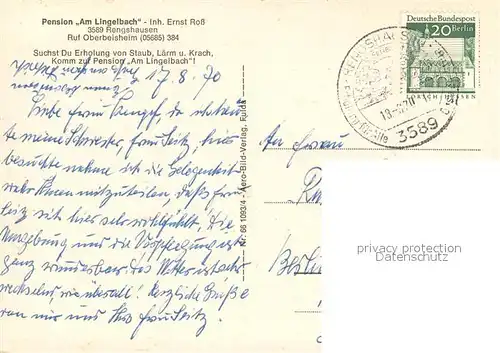 Pension „Am Lingelbach" - Inh. Ernst Roß
3589 Rengshausen
Ruf Oberbeisheim (05685) 384
Suchst Du Erholung von Staub, Lärm u. Krach,
Komm zur Pension „Am Lingelbach"!
17.8.70
Liebe Frau, da ich
meine Schwester, Frau Seitz, hier
besuchte nehme ich die Gelegenheit
wahr Ihnen mitzuteilen, daß Frau
Seitz sich hier sehr wohl fühlt. Die
Umgebung und die Verpflegung ist
ganz wunderbar das Wetter ist sehr
wechselnd, wie überall! Herzliche Grüße
von mir und Ihre Frau Seitz.
Nr. 66 1093/4 - Aero-Bild-Verlag, Fulda
Deutsche Bundespost
20 Berlin
RENGSHAUSEN
3589
An Frau
Berlin
privacy protection
Datenschutz